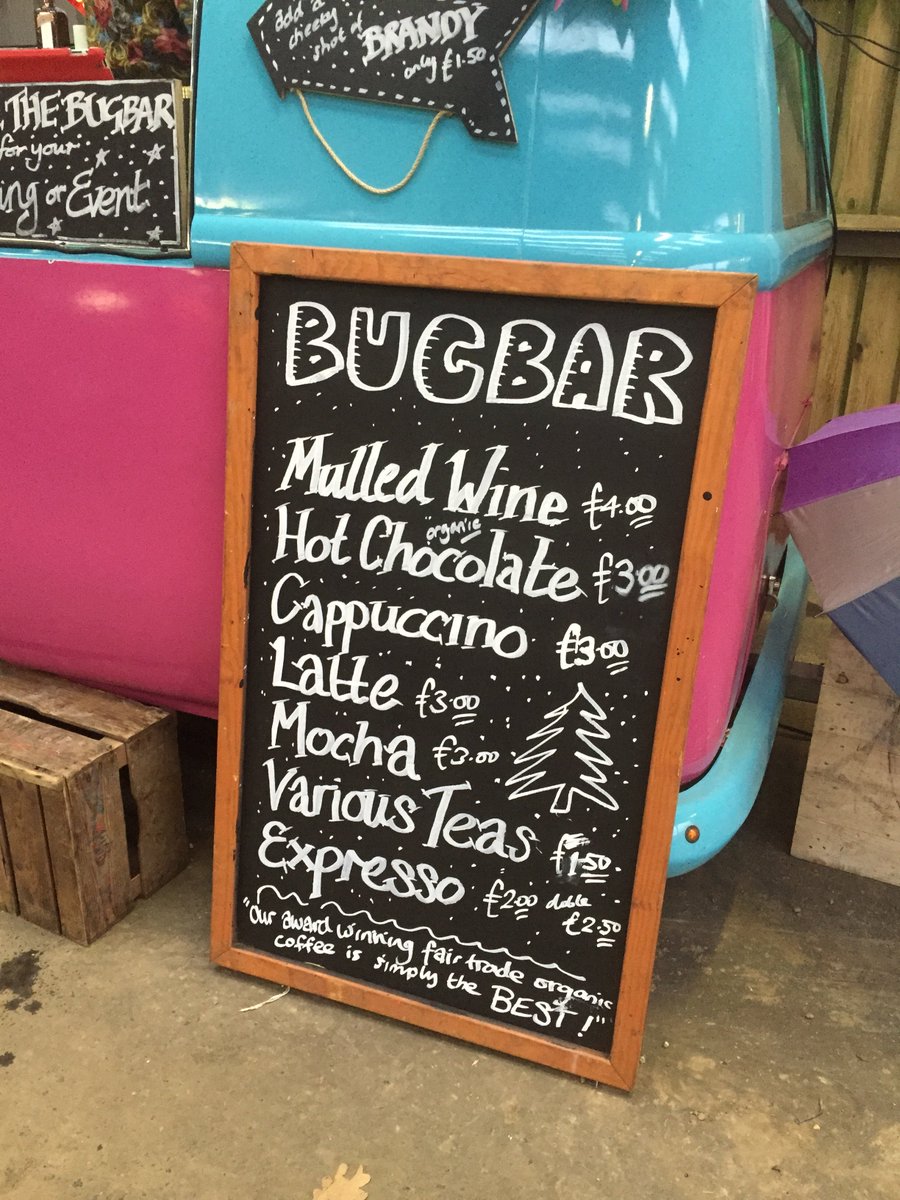 add a
cheeky
shot of
BRANDY
only £1.50
THE BUGBAR
for your
ing or Event
BUGBAR
Mulled Wine £4.00
organic
Hot Chocolate £3.00
Cappuccino £3.00
Latte £3.00
Mocha £3.00
Various Teas £1.50
Expresso £2.00 double
£2.50
"Our award winning fair trade organic
coffee is simply the BEST!"